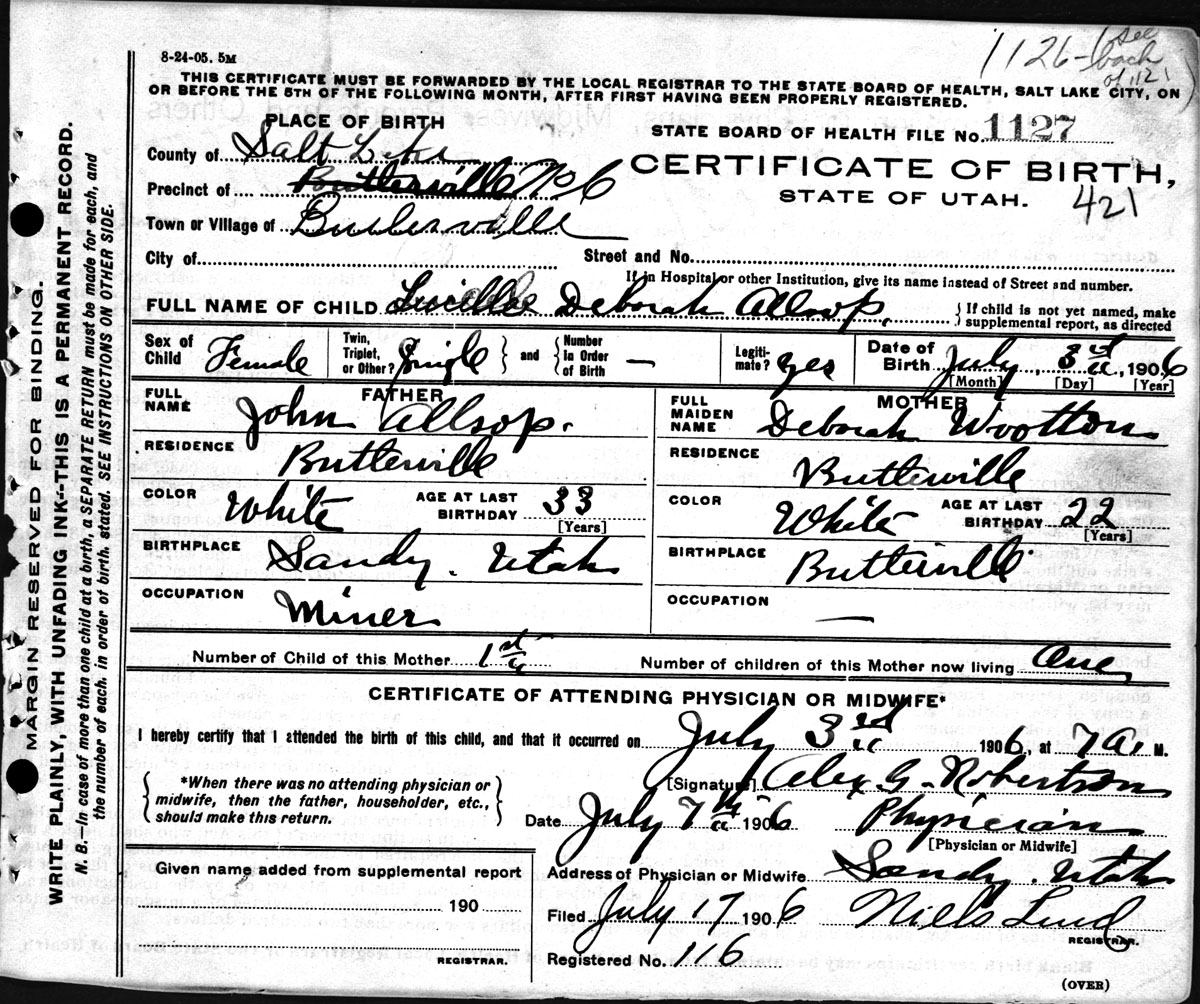 8-24-05. 5M
1126- see
back
of 1121
THIS CERTIFICATE MUST BE FORWARDED BY THE LOCAL REGISTRAR TO THE STATE BOARD OF HEALTH, SALT LAKE CITY, ON
OR BEFORE THE 5TH OF THE FOLLOWING MONTH, AFTER FIRST HAVING BEEN PROPERLY REGISTERED.
PLACE OF BIRTH
STATE BOARD OF HEALTH FILE No. 1127
County of Salt Lake
CERTIFICATE OF BIRTH,
Precinct of Butlerville No 6
STATE OF UTAH. 421
Town or Village of Butlerville
City of Street and No.
If in Hospital or other Institution, give its name instead of Street and number.
FULL NAME OF CHILD Lucille Deborah Allsop. { If child is not yet named, make
supplemental report, as directed
Sex of Child Female Twin, Triplet, or Other? Single } and { Number In Order of Birth — Legiti- mate? yes Date of Birth July 3rd, 1906
[Month] [Day] [Year]
FATHER MOTHER
FULL NAME John Allsop. FULL MAIDEN NAME Deborah Wootton
RESIDENCE Butlerville RESIDENCE Butlerville
COLOR White AGE AT LAST BIRTHDAY 33 [Years] COLOR White AGE AT LAST BIRTHDAY 22 [Years]
BIRTHPLACE Sandy. Utah BIRTHPLACE Butlerville
OCCUPATION Miner OCCUPATION —
Number of Child of this Mother 1st Number of children of this Mother now living One
CERTIFICATE OF ATTENDING PHYSICIAN OR MIDWIFE*
I hereby certify that I attended the birth of this child, and that it occurred on July 3rd 1906, at 7 A. M.
*When there was no attending physician or
midwife, then the father, householder, etc.,
should make this return.
[Signature] Alex G. Robertson
Date July 7th 1906 Physician
[Physician or Midwife]
Given name added from supplemental report
190
REGISTRAR.
Address of Physician or Midwife Sandy. Utah
Filed July 17 1906 Niels Lind
REGISTRAR.
Registered No. 116
(OVER)
MARGIN RESERVED FOR BINDING.
WRITE PLAINLY, WITH UNFADING INK--THIS IS A PERMANENT RECORD.
N. B.—In case of more than one child at a birth, a SEPARATE RETURN must be made for each, and
the number of each, in order of birth, stated. SEE INSTRUCTIONS ON OTHER SIDE.